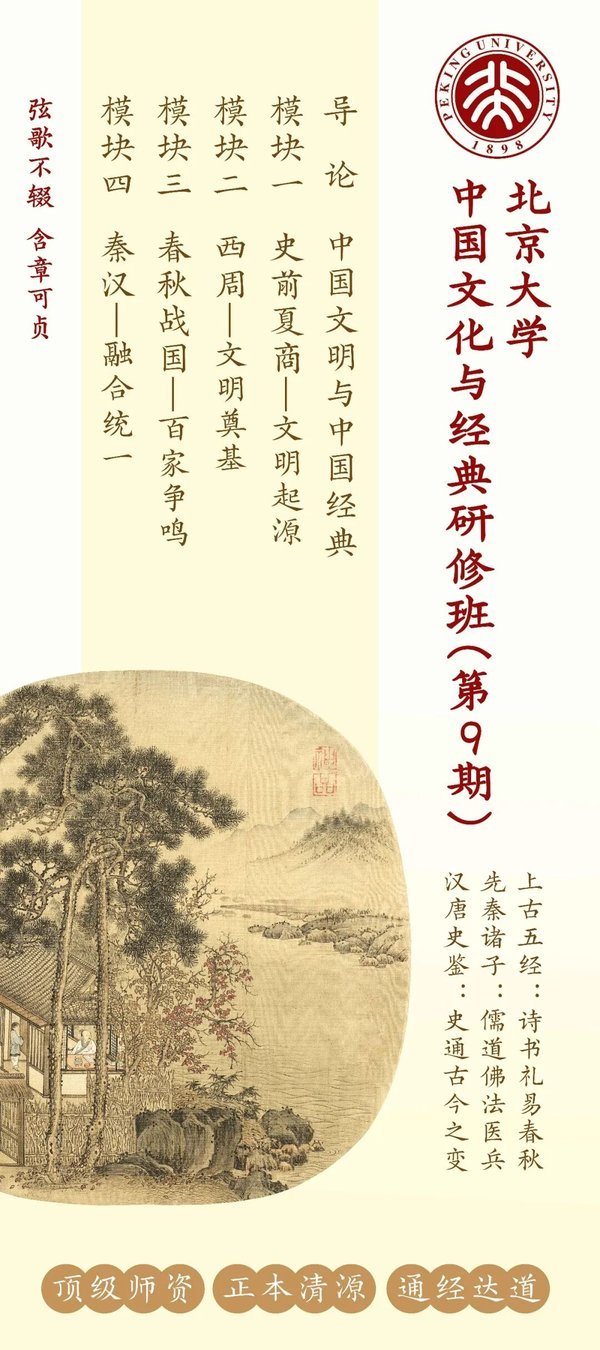 PEKING UNIVERSITY
1898
北京大学
中国文化与经典研修班（第9期）
上古五经：诗书礼易春秋
先秦诸子：儒道佛法医兵
汉唐史鉴：史通古今之变
导论 中国文明与中国经典
模块一 史前夏商—文明起源
模块二 西周—文明奠基
模块三 春秋战国—百家争鸣
模块四 秦汉—融合统一
弦歌不辍 含章可贞
顶级师资 正本清源 通经达道